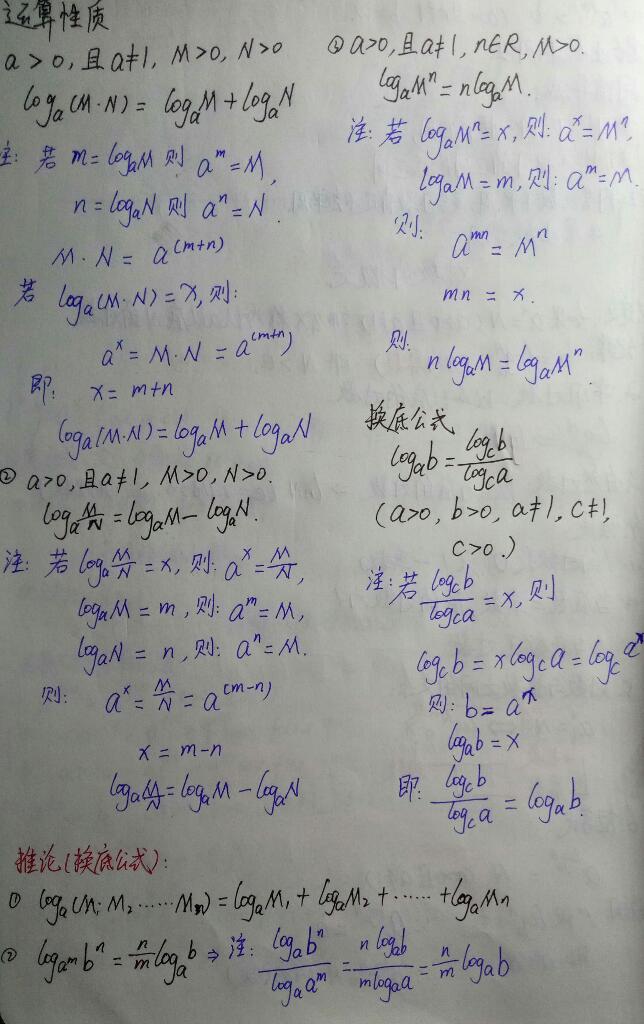 运算性质
a>0,且a≠1, M>0, N>0
logₐ(M·N)= logₐM+logₐN
注: 若 m=logₐM 则 aᵐ=M,
n=logₐN 则 aⁿ=N.
M·N = a⁽ᵐ⁺ⁿ⁾
若 logₐ(M·N)=x,则:
aˣ = M·N = a⁽ᵐ⁺ⁿ⁾
即: x=m+n
logₐ(M·N)=logₐM+logₐN
② a>0,且a≠1, M>0, N>0.
logₐ M/N=logₐM-logₐN.
注: 若 logₐ M/N=x,则: aˣ=M/N,
logₐM=m,则: aᵐ=M,
logₐN=n,则: aⁿ=M.
则: aˣ=M/N=a⁽ᵐ⁻ⁿ⁾
x=m-n
logₐ M/N=logₐM-logₐN
③ a>0,且a≠1, n∈R, M>0.
logₐMⁿ=nlogₐM.
注: 若 logₐMⁿ=x,则: aˣ=Mⁿ,
logₐM=m,则: aᵐ=M.
则: aᵐⁿ=Mⁿ
mn=x.
则: nlogₐM=logₐMⁿ
换底公式
logₐb=log_c b/log_c a
(a>0, b>0, a≠1, c≠1,
c>0.)
注: 若 log_c b/log_c a=x,则
log_c b=xlog_c a=log_c aˣ
则: b=aˣ
logₐb=x
即: log_c b/log_c a=logₐb.
推论(换底公式):
① logₐ(M₁M₂……Mₙ)=logₐM₁+logₐM₂+……+logₐMₙ
② log_aᵐ bⁿ=n/m logₐb ⇒ 注: logₐbⁿ/logₐaᵐ=nlogₐb/mlogₐa=n/m logₐb